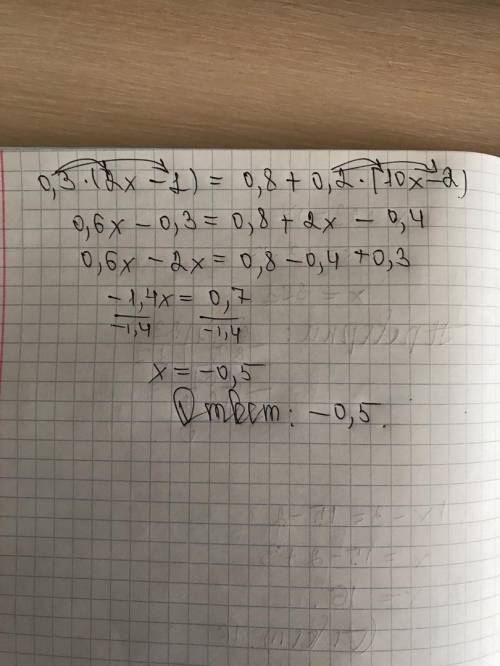 0,3·(2x-1) = 0,8+0,2·(10x-2)
0,6x-0,3=0,8+2x-0,4
0,6x-2x=0,8-0,4+0,3
-1,4x = 0,7
-1,4 -1,4
x=-0,5
Ответ: -0,5.